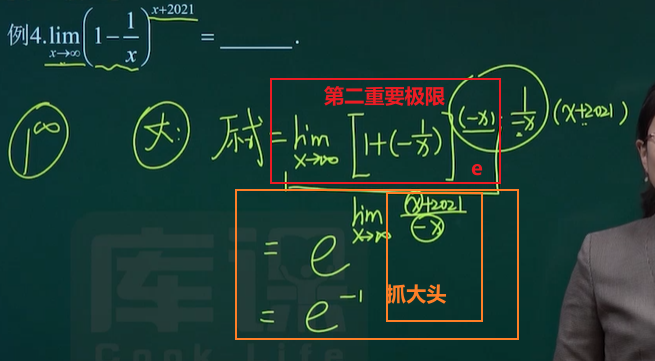 例4. lim x→∞ (1 - 1/x)^(x+2021) = ______.
第二重要极限
1^∞ 大: 原式 = lim x→∞ [1+(-1/x)]^((-x)·1/(-x)·(x+2021))
e
= e^(lim x→∞ (x+2021)/(-x))
抓大头
= e^(-1)
库课
Cook Life